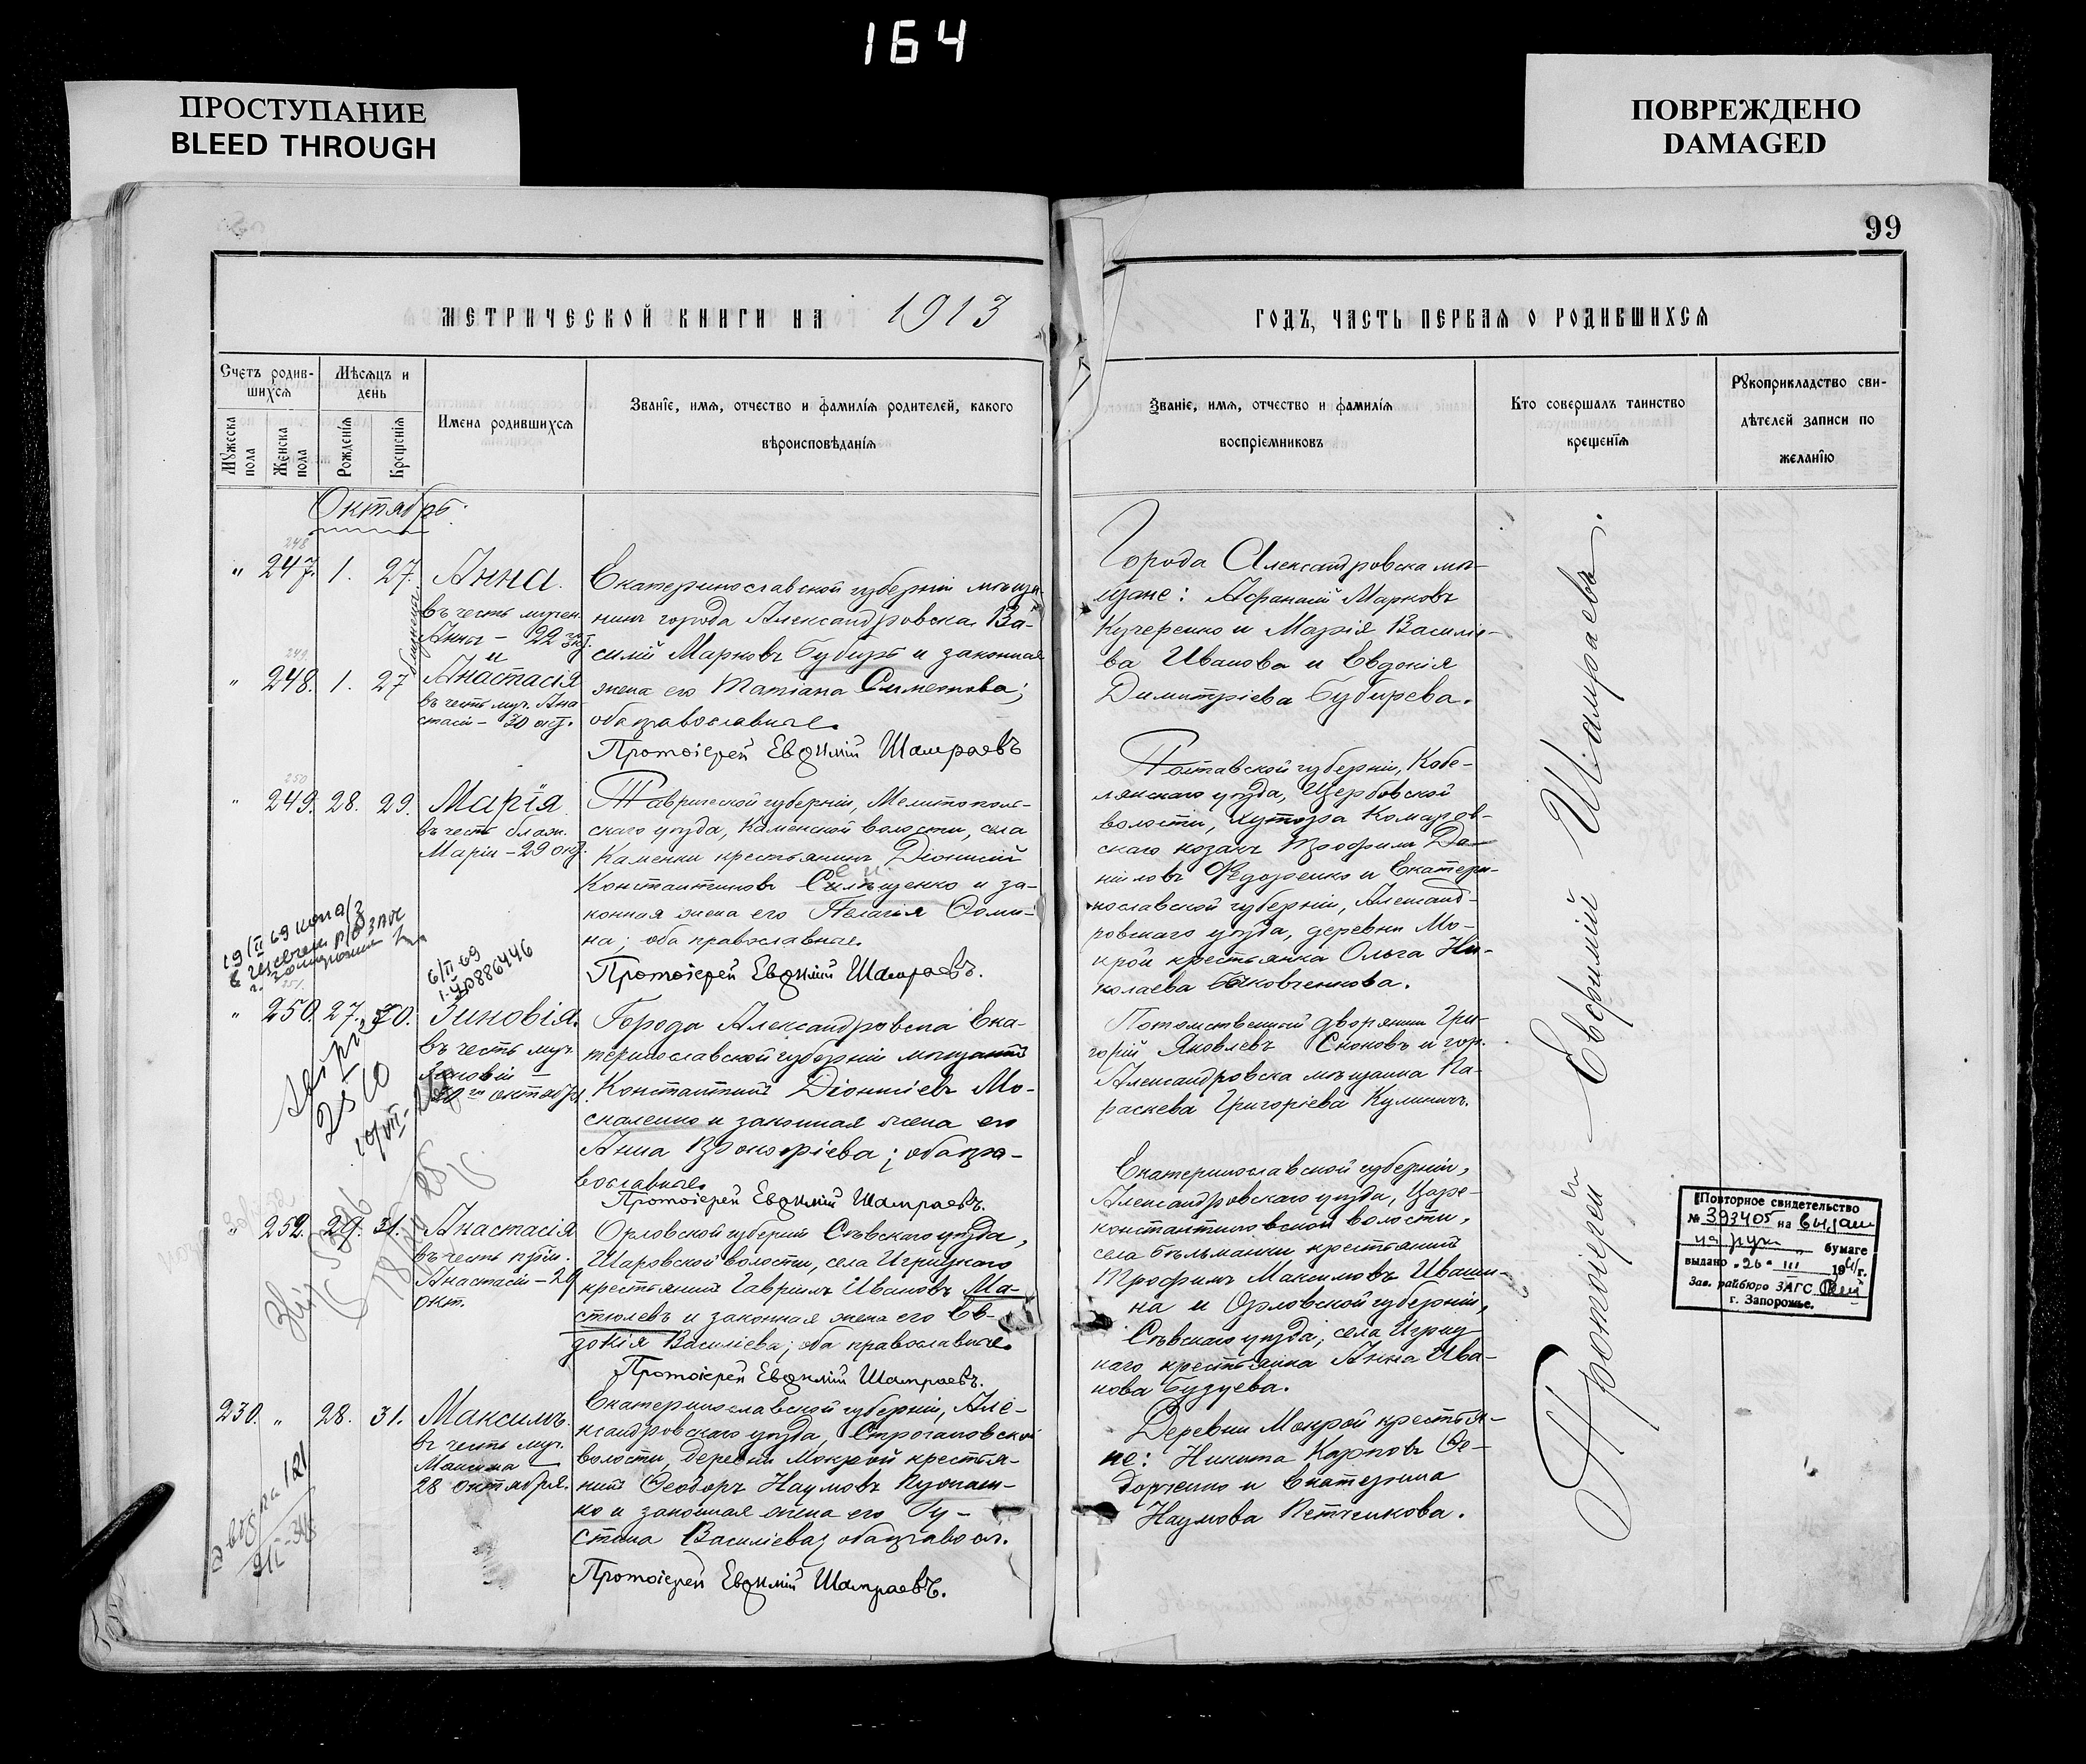 164
ПРОСТУПАНИЕ
BLEED THROUGH
ПОВРЕЖДЕНО
DAMAGED
99
МЕТРИЧЕСКОЙ КНИГИ НА 1913
ГОДЪ, ЧАСТЬ ПЕРВАЯ О РОДИВШИХСЯ
Счетъ родив-
шихся
Мужеска пола
Женска пола
Мѣсяцъ и
день
Рожденія
Крещенія
Имена родившихся
Званіе, имя, отчество и фамилія родителей, какого
вѣроисповѣданія
Званіе, имя, отчество и фамилія
воспріемниковъ
Кто совершалъ таинство
крещенія
Рукоприкладство сви-
дѣтелей записи по
желанію
Октябрь.
248
" 247. 1. 27. Анна.
въ честь мучен.
Анны - 22 окт.
и
близнецы
249
" 248. 1. 27 Анастасія
въ честь муч. Ана-
стасіи - 30 окт.
Екатеринославской губерніи мѣща-
нинъ города Александровска Ва-
силій Марковъ Бубырь и законная
жена его Татіана Симеонова;
оба православные.
Протоіерей Евфимій Шамраевъ
Города Александровска мѣ-
щане: Афанасій Марковъ
Кучеренко и Марія Василіе-
ва Иванова и Евдокія
Димитріева Бубырева.
250
" 249. 28. 29. Марія
въ честь блаж.
Маріи - 29 окт.
Таврической губерніи, Мелитополь-
скаго уѣзда, Каменской волости, села
Каменки крестьянинъ Діонисій
Константиновъ и за-
конная жена его Пелагія Фоми-
на; оба православные.
Протоіерей Евфимій Шамраевъ.
Полтавской губерніи, Кобе-
лякскаго уѣзда, Щербовской
волости, хутора Комаров-
скаго козакъ Трофимъ Да-
ніиловъ и Екатери-
нославской губерніи, Александ-
ровскаго уѣзда, деревни Мо-
крой крестьянка Ольга Ни-
колаева
19/II 69
6/II 69
886446
251
" 250. 27. 30. Зиновія.
въ честь муч.
Зиновіи -
30 го октября.
Города Александровска Ека-
теринославской губерніи мѣщанинъ
Константинъ Діонисіевъ Мо-
скаленко и законная жена его
Анна Онофріева; оба пра-
вославные.
Протоіерей Евфимій Шамраевъ.
Потомственный дворянинъ Гри-
горій Яковлевъ и гор.
Александровска мѣщанка Па-
раскева Григоріева Кулиничъ.
" 252. 29. 31. Анастасія
въ честь прпм.
Анастасіи - 29
окт.
Орловской губерніи Сѣвскаго уѣзда,
Шаровской волости, села Игрицкаго
крестьянинъ Гавріилъ Ивановъ Ма-
стюлевъ и законная жена его Ев-
докія Василіева; оба православные.
Протоіерей Евфимій Шамраевъ.
Екатеринославской губерніи,
Александровскаго уѣзда, Царе-
константиновской волости,
села Бѣльманки крестьянинъ
Трофимъ Максимовъ Ивани-
на и Орловской губерніи,
Сѣвскаго уѣзда, села Игриц-
каго крестьянка Анна Ива-
нова Бузуева.
230. " 28. 31. Максимъ
въ честь муч.
Максима
28 октября.
Екатеринославской губерніи, Але-
ксандровскаго уѣзда, Строгановской
волости, деревни Мокрой крестья-
нинъ Феодоръ Наумовъ
и законная жена его Іу-
стина Василіева; оба правосл.
Протоіерей Евфимій Шамраевъ.
Деревни Мокрой крестья-
не: Никита Карповъ Фе-
дорченко и Екатерина
Наумова
Протоіерей Евфимій Шамраевъ.
Повторное свидетельство
№ 393405 на выдан
на руки бумаге
выдано "26" III 1941 г.
Зав. райбюро ЗАГС
г. Запорожье.